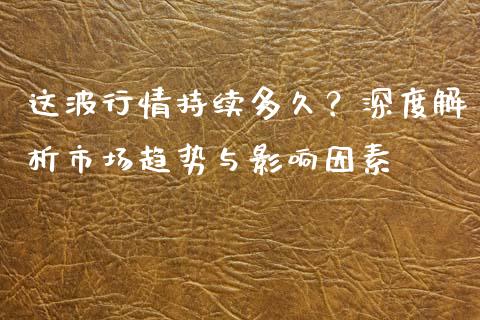 这波行情持续多久？深度解
析市场趋势与影响因素